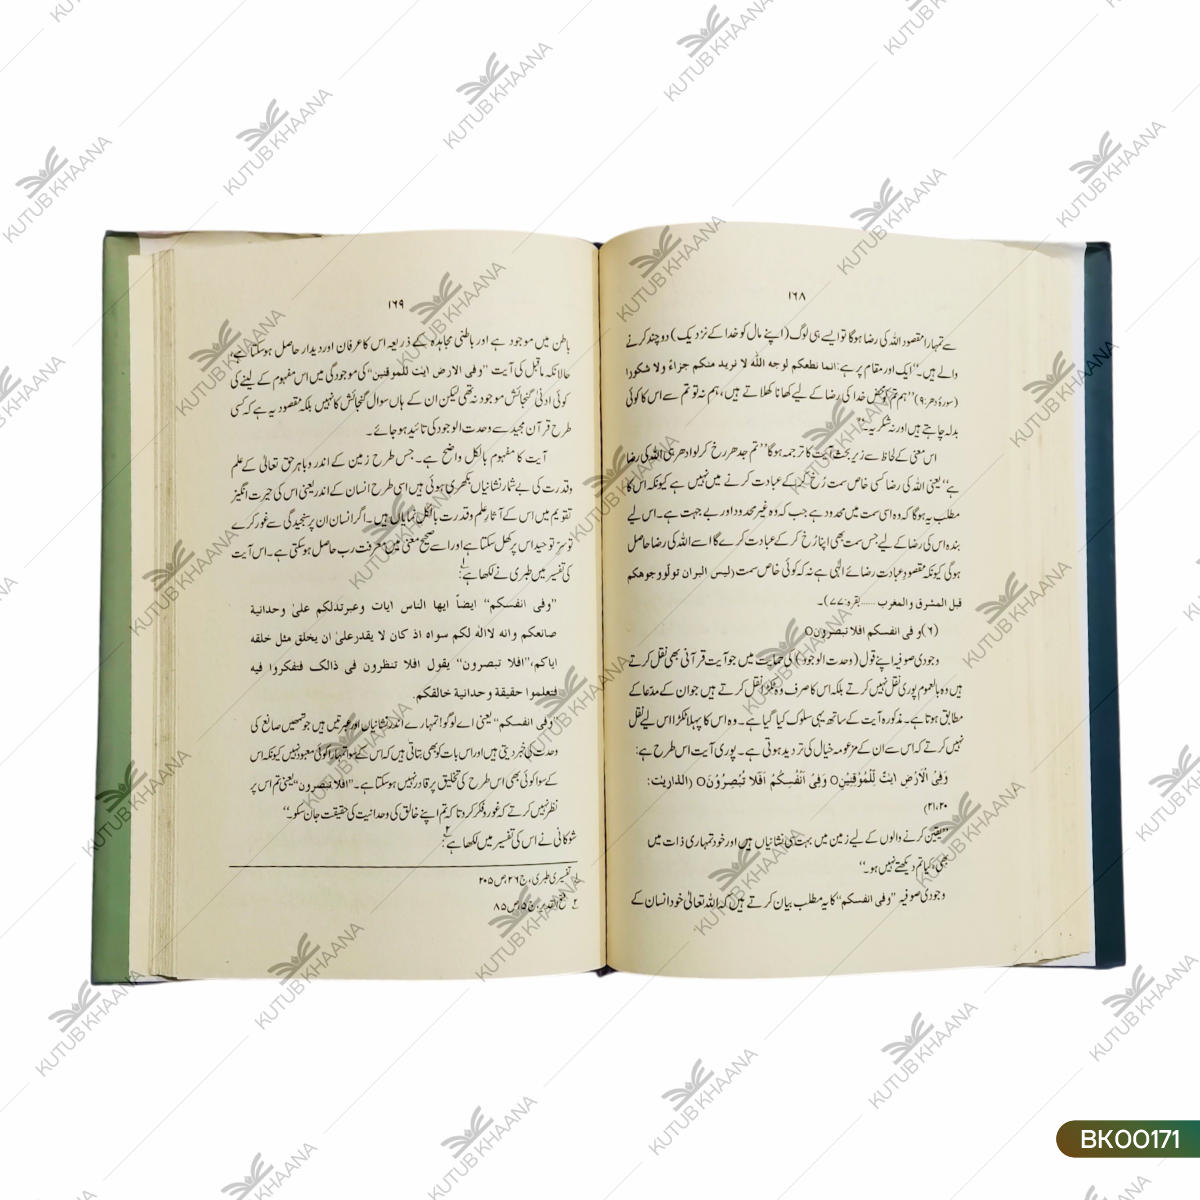 ۱۶۸
سے تمہارا مقصود اللہ کی رضا ہوگا تو ایسے ہی لوگ (اپنے مال کو خدا کے نزدیک) دو چند کرنے
والے ہیں۔‘‘ ایک اور مقام پر ہے: انما نطعکم لوجہ اللّٰہ لا نرید منکم جزاءً ولا شکورا
(سورۂ دھر:۹) ’’ہم تم کو محض خدا کی رضا کے لیے کھانا کھلاتے ہیں، ہم نہ تو تم سے اس کا کوئی
بدلہ چاہتے ہیں اور نہ شکریہ۔‘‘
اس معنی کے لحاظ سے زیر بحث آیت کا ترجمہ ہوگا ’’تم جدھر رخ کرلو ادھر ہی اللہ کی رضا
ہے‘‘ یعنی اللہ کی رضا کسی خاص سمت رُخ کرکے عبادت کرنے میں نہیں ہے کیونکہ اس کا
مطلب یہ ہوگا کہ وہ اسی سمت میں محدود ہے جب کہ وہ غیر محدود اور بے جہت ہے۔ اس لیے
بندہ اس کی رضا کے لیے جس سمت بھی اپنا رُخ کرکے عبادت کرے گا اسے اللہ کی رضا حاصل
ہوگی کیونکہ مقصودِ عبادت رضائے الٰہی ہے نہ کہ کوئی خاص سمت (لیس البران تولّووجوھکم
قبل المشرق والمغرب ......بقرہ:۷۷)۔
(۶) و فی انفسکم افلا تبصرون○
وجودی صوفیہ اپنے قول (وحدت الوجود) کی حمایت میں جو آیت قرآنی بھی نقل کرتے
ہیں وہ بالعموم پوری نقل نہیں کرتے بلکہ اس کا صرف وہ ٹکڑا نقل کرتے ہیں جو ان کے مدعا کے
مطابق ہوتا ہے۔ مذکورہ آیت کے ساتھ یہی سلوک کیا گیا ہے۔ وہ اس کا پہلا ٹکڑا اس لیے نقل
نہیں کرتے کہ اس سے ان کے مزعومہ خیال کی تردید ہوتی ہے۔ پوری آیت اس طرح ہے:
وَفِی الْاَرْضِ اٰیٰتٌ لِّلْمُوْقِنِیْنَ○ وَفِیْ اَنْفُسِکُمْ اَفَلَا تُبْصِرُوْنَ○ (الذاریٰت:
۲۱،۲۰)
’’یقین کرنے والوں کے لیے زمین میں بہت سی نشانیاں ہیں اور خود تمہاری ذات میں
بھی، کیا تم دیکھتے نہیں ہو۔‘‘
وجودی صوفیہ ’’وفی انفسکم‘‘ کا یہ مطلب بیان کرتے ہیں کہ اللہ تعالیٰ خود انسان کے
۱۶۹
باطن میں موجود ہے اور باطنی مجاہدہ کے ذریعہ اس کا عرفان اور دیدار حاصل ہوسکتا ہے،
حالانکہ ماقبل کی آیت ’’وفی الارض ایٰت للموقنین‘‘ کی موجودگی میں اس مفہوم کے لینے کی
کوئی ادنیٰ گنجائش موجود نہ تھی لیکن ان کے ہاں سوال گنجائش کا نہیں بلکہ مقصود یہ ہے کہ کسی
طرح قرآن مجید سے وحدت الوجود کی تائید ہوجائے۔
آیت کا مفہوم بالکل واضح ہے۔ جس طرح زمین کے اندر وباہر حق تعالیٰ کے علم
وقدرت کی بے شمار نشانیاں بکھری ہوئی ہیں اسی طرح انسان کے اندر یعنی اس کی حیرت انگیز
تقویم میں اس کے آثار علم وقدرت بالکل نمایاں ہیں۔ اگر انسان ان پر سنجیدگی سے غور کرے
تو سرّ توحید اس پر کھل سکتا ہے اور اسے صحیح معنی میں معرفت رب حاصل ہوسکتی ہے۔ اس آیت
کی تفسیر میں طبری نے لکھا ہے:
’’وفی انفسکم‘‘ ایضاً ایھا الناس ایات وعبرتدلکم علیٰ وحدانیة
صانعکم وانہ لاالٰہ لکم سواہ اذ کان لا یقدرعلیٰ ان یخلق مثل خلقہ
ایاکم،’’افلا تبصرون‘‘ یقول افلا تنظرون فی ذالک فتفکروا فیہ
فتعلموا حقیقة وحدانیة خالقکم۔
’’وفی انفسکم‘‘ یعنی اے لوگو! تمہارے اندر نشانیاں اور عبرتیں ہیں جو تمھیں صانع کی
وحدت کی خبر دیتی ہیں اور اس بات کو بھی بتاتی ہیں کہ اس کے سوا تمہارا کوئی معبود نہیں کیونکہ اس
کے سوا کوئی بھی اس طرح کی تخلیق پر قادر نہیں ہوسکتا ہے۔ ’’افلا تبصرون‘‘ یعنی تم اس پر
نظر نہیں کرتے کہ غور و فکر کرو تاکہ تم اپنے خالق کی وحدانیت کی حقیقت جان سکو۔‘‘
شوکانی نے اس کی تفسیر میں لکھا ہے:
۱؎ تفسیری طبری، ج۲۶، ص۲۰۵
۲؎ فتح القدیر، ج۵، ص۸۵
KUTUB KHAANA
BK00171